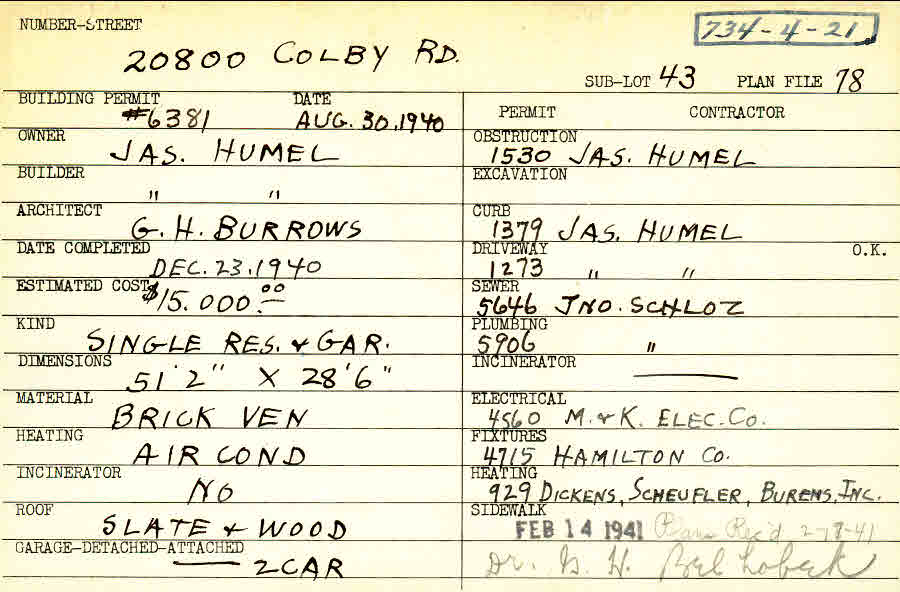 NUMBER-STREET
734-4-21
20800 COLBY RD.
SUB-LOT 43 PLAN FILE 78
BUILDING PERMIT DATE
#6381 AUG. 30, 1940
OWNER
JAS. HUMEL
BUILDER
" "
ARCHITECT
G. H. BURROWS
DATE COMPLETED
DEC. 23, 1940
ESTIMATED COST
$15.000.00
KIND
SINGLE RES. & GAR.
DIMENSIONS
51'2" X 28'6"
MATERIAL
BRICK VEN
HEATING
AIR COND
INCINERATOR
NO
ROOF
SLATE & WOOD
GARAGE-DETACHED-ATTACHED
2 CAR
PERMIT CONTRACTOR
OBSTRUCTION
1530 JAS. HUMEL
EXCAVATION
CURB
1379 JAS. HUMEL
DRIVEWAY O.K.
1273 " "
SEWER
5646 JNO. SCHLOZ
PLUMBING
5906 "
INCINERATOR
ELECTRICAL
4560 M. & K. ELEC. CO.
FIXTURES
4715 HAMILTON CO.
HEATING
929 DICKENS, SCHEUFLER, BURENS, INC.
SIDEWALK
FEB 14 1941 Plans Rec'd
Dr. H.